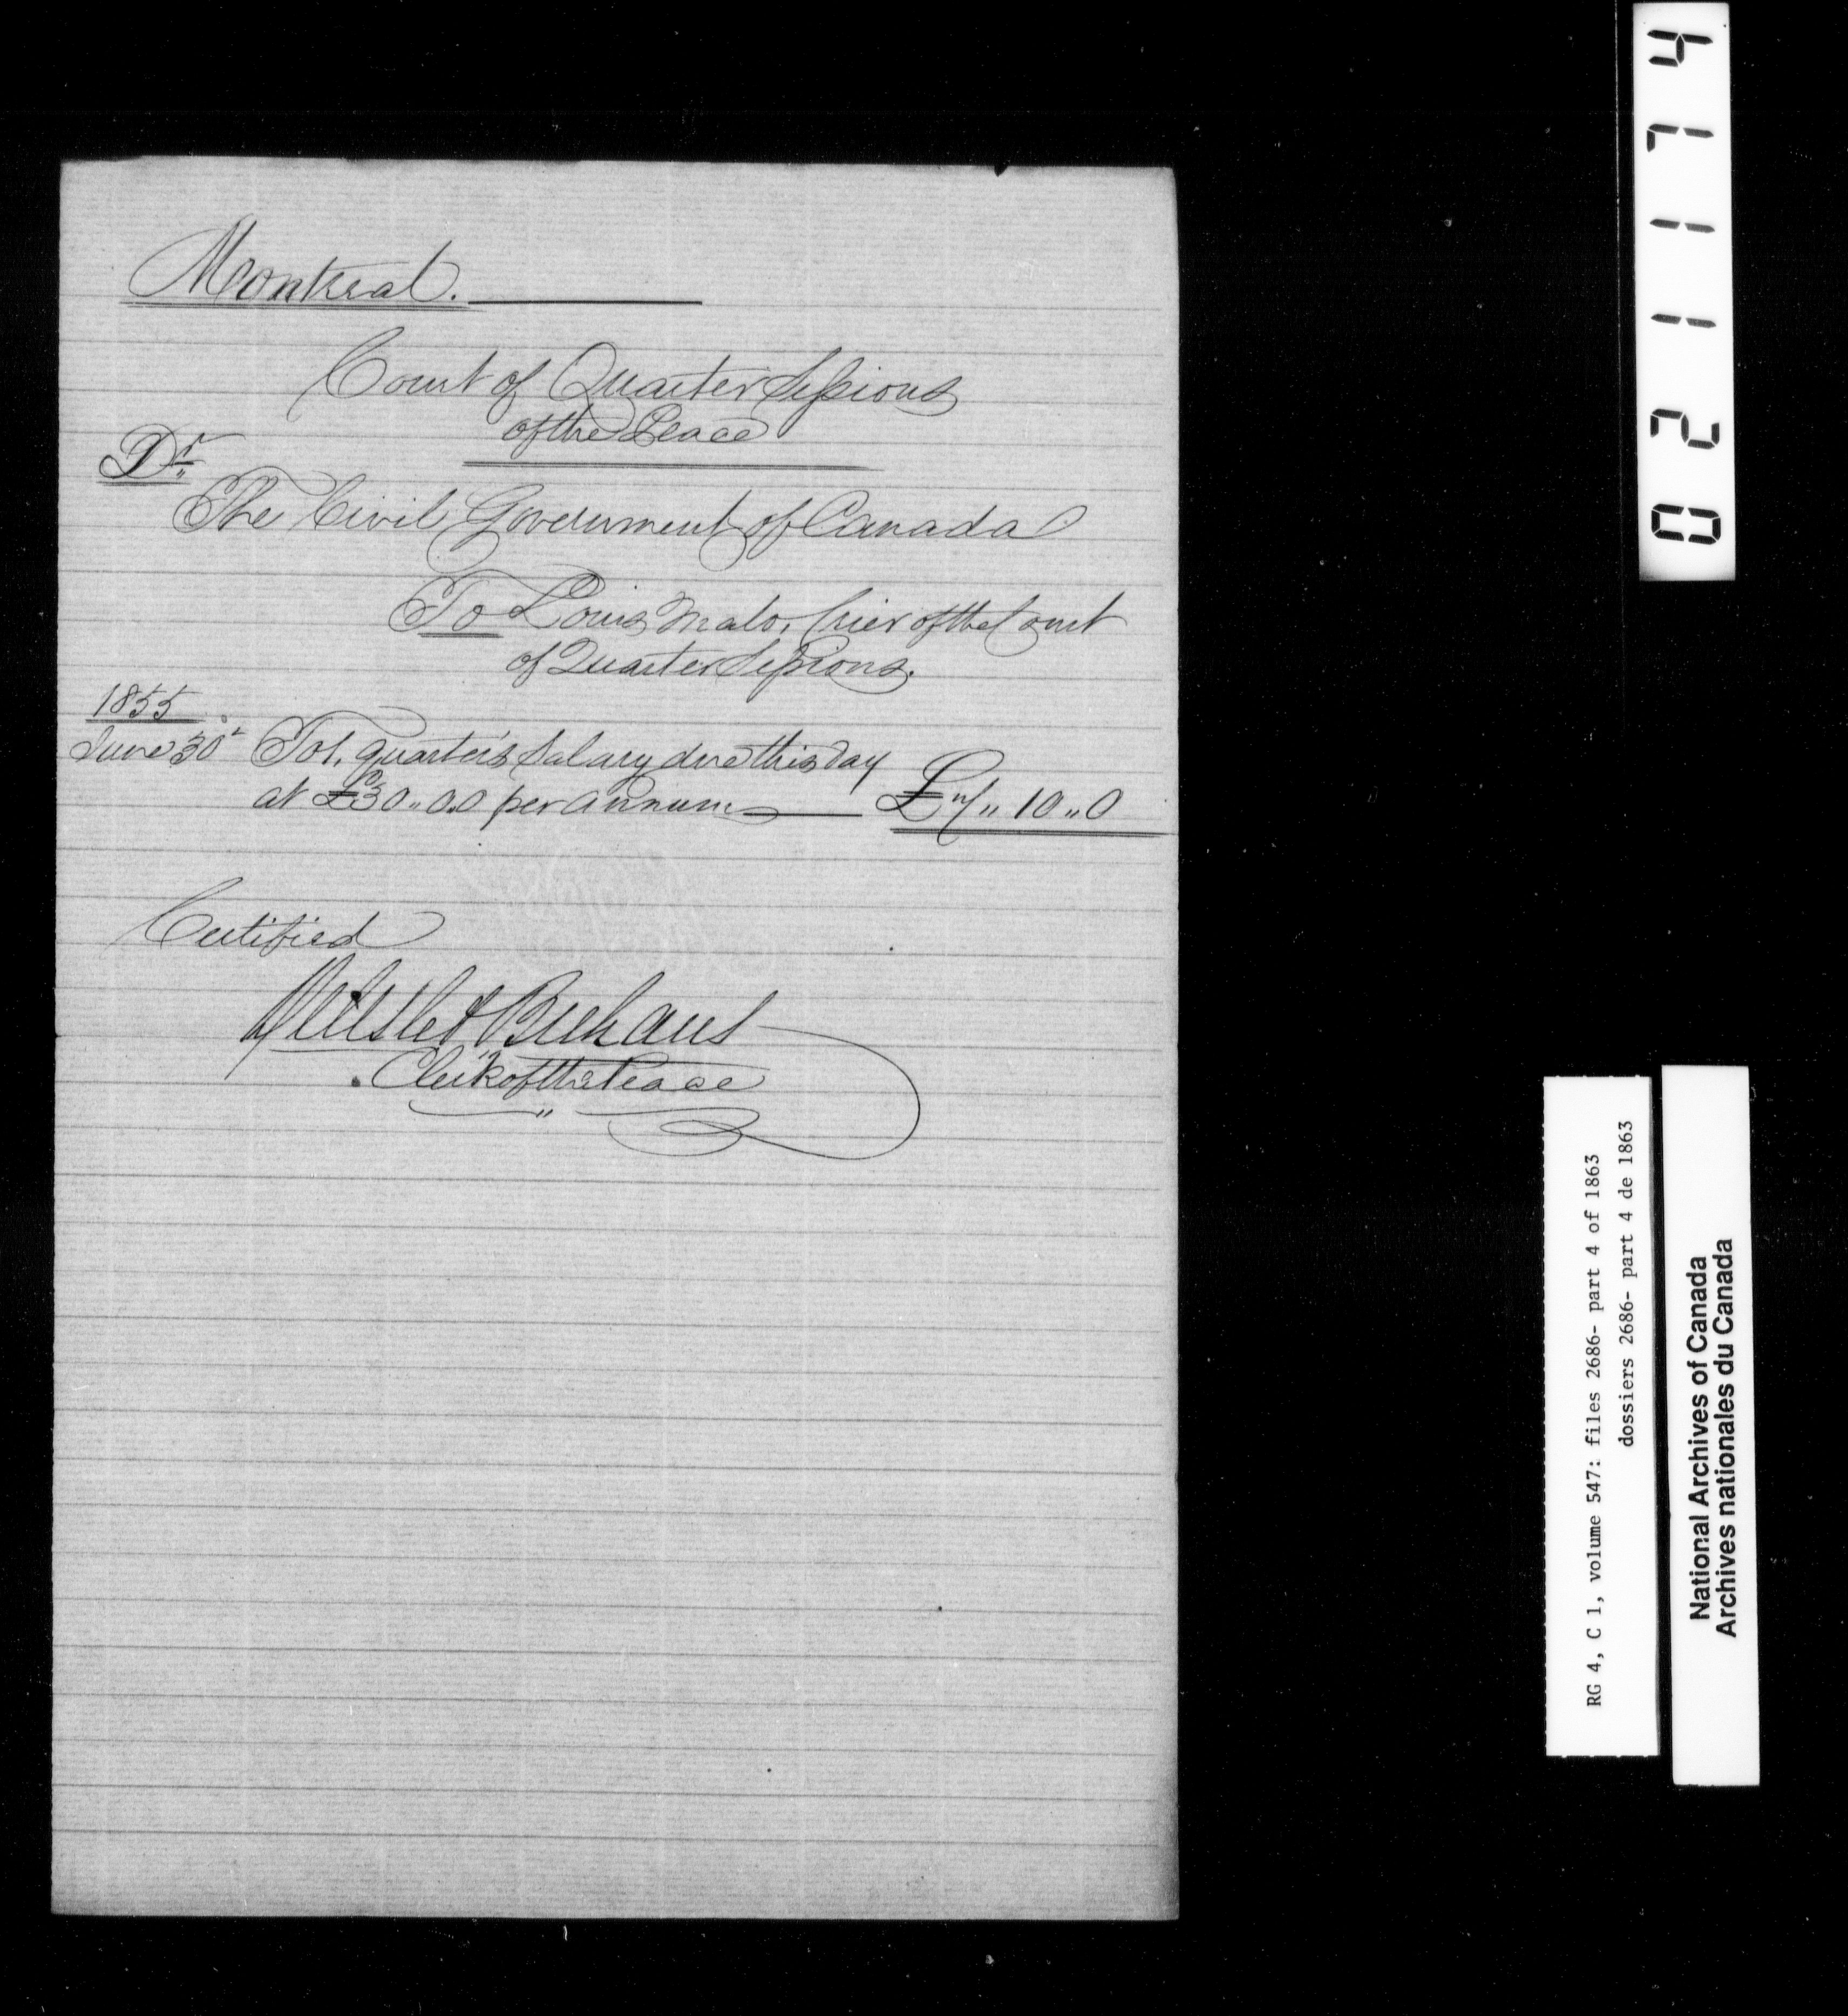 Montreal.
Court of Quarter Sessions
of the Peace
Dr
The Civil Government of Canada
To Louis Malo, Crier of the Court
of Quarter Sessions.
1855
June 30th To 1. quarter's Salary due this day
at £30,,0.0 per annum £7,,10,,0
Certified
Delisle & Brehaut
Clerk of the Peace
021174
RG 4, C 1, volume 547: files 2686- part 4 of 1863
dossiers 2686- part 4 de 1863
National Archives of Canada
Archives nationales du Canada